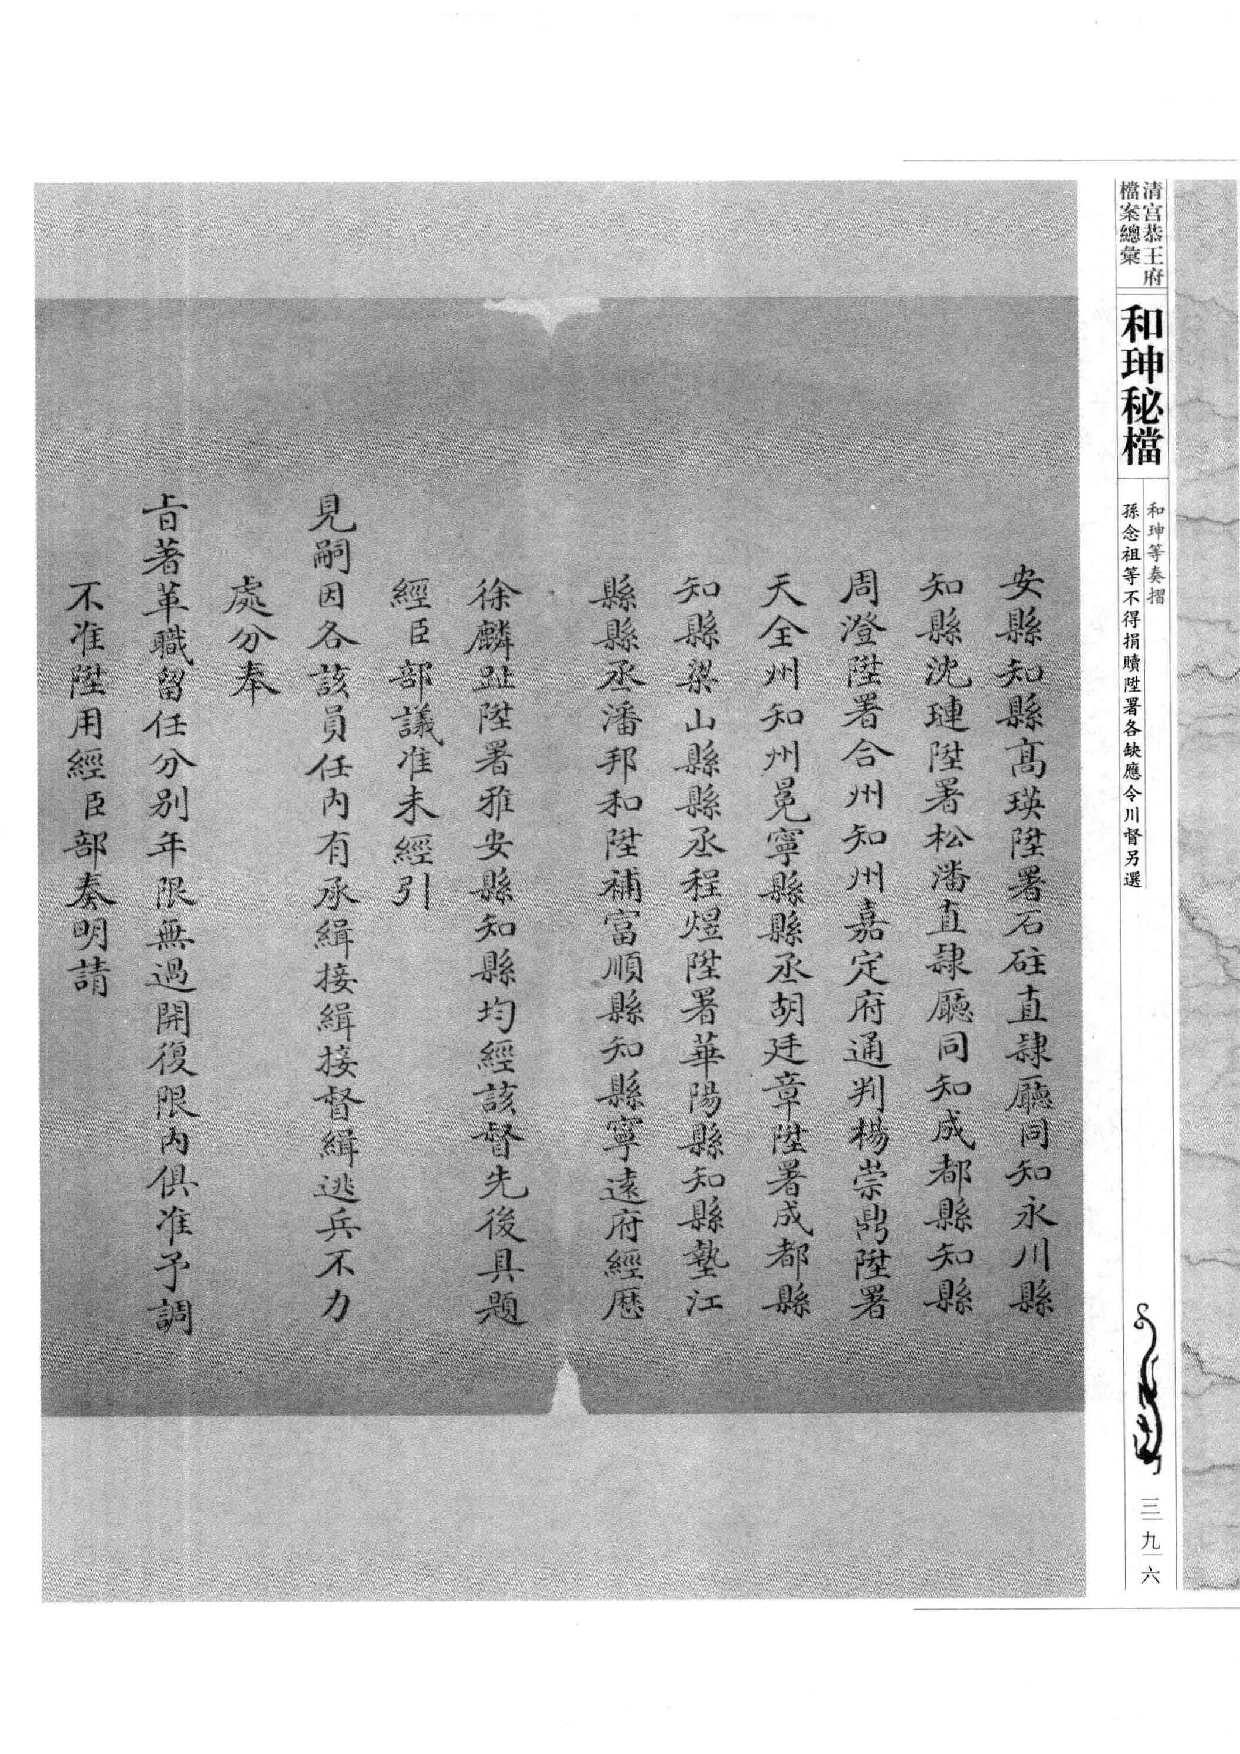 清宮恭王府
檔案總彙
和珅秘檔
和珅等奏摺
孫念祖等不得捐贖陞署各缺應令川督另選
三九六
安縣知縣高瑛陞署石砫直隸廳同知永川縣
知縣沈璉陞署松潘直隸廳同知成都縣知縣
周澄陞署合州知州嘉定府通判楊崇鼎陞署
天全州知州冕寧縣縣丞胡廷章陞署成都縣
知縣梁山縣縣丞程煜陞署華陽縣知縣墊江
縣縣丞潘邦和陞補富順縣知縣寧遠府經歷
徐麟趾陞署雅安縣知縣均經該督先後具題
經臣部議准未經引
見嗣因各該員任內有承緝接緝接督緝逃兵不力
處分奉
旨著革職留任分別年限無過開復限內俱准予調
不准陞用經臣部奏明請